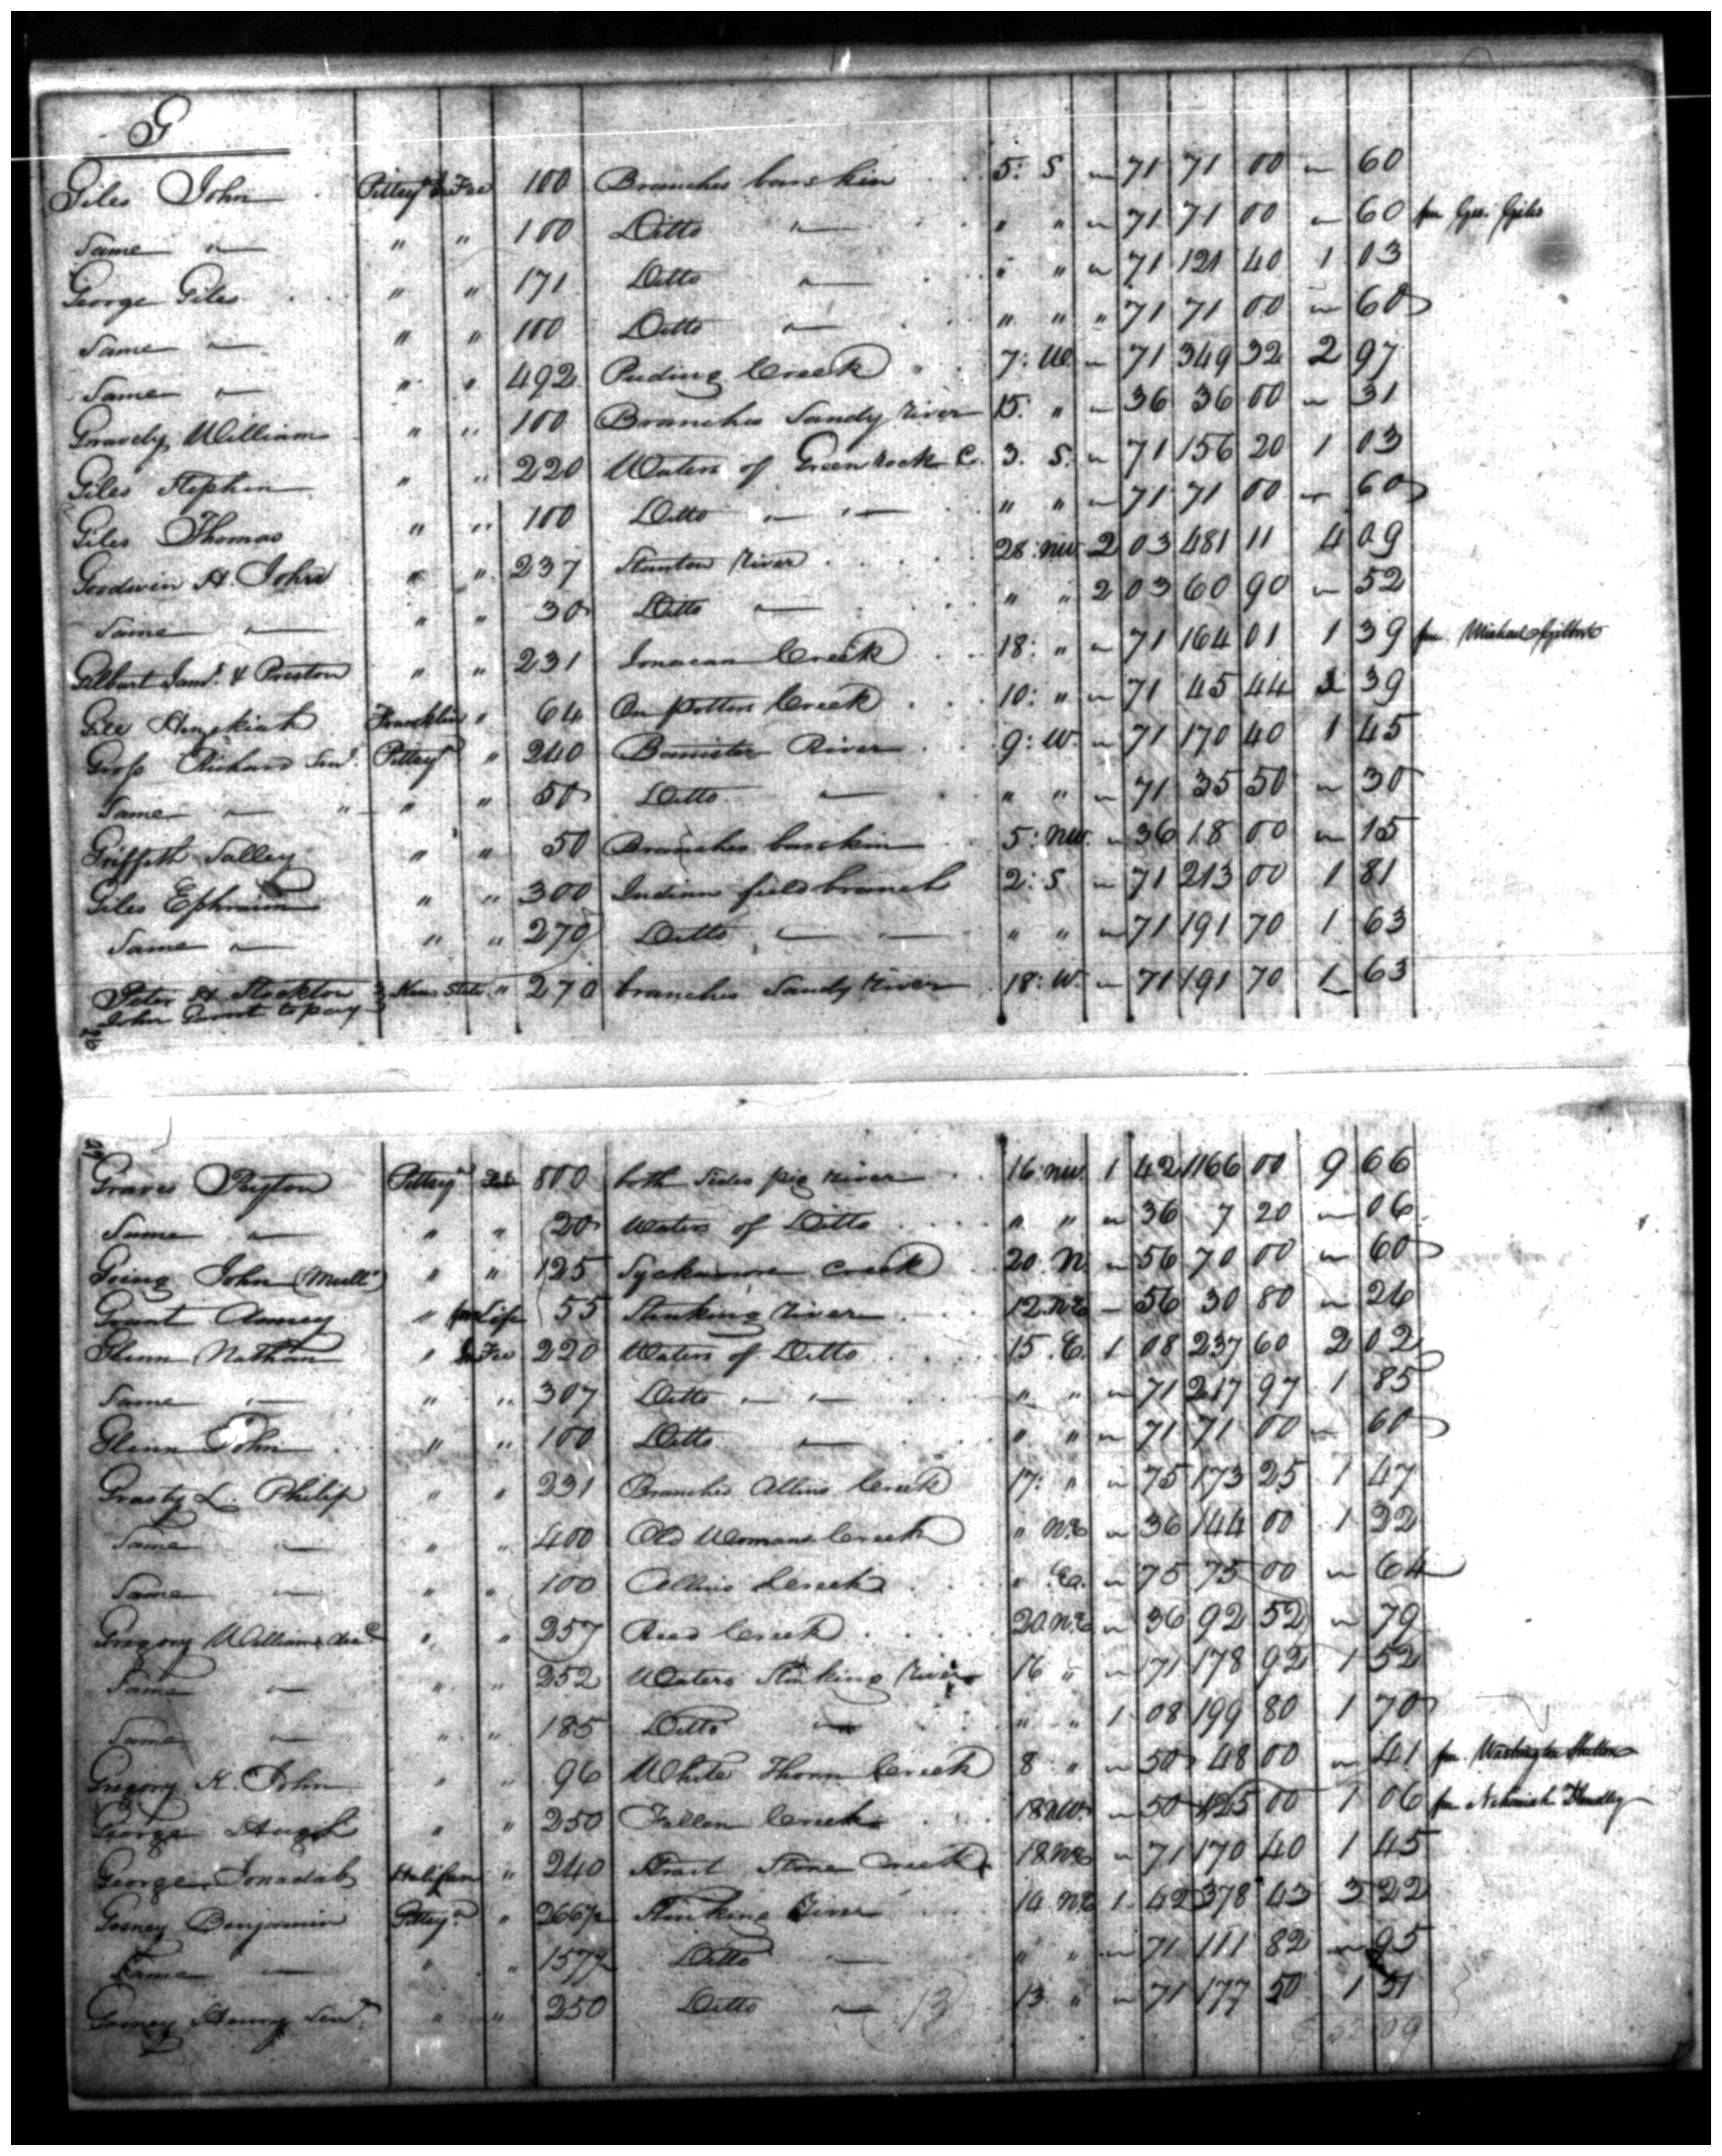 G
Giles John Pittsyª In Fee 100 Branches banskin 5: S " 71 71 00 " 60
Same " " " 100 Ditto " " " " 71 71 00 " 60 fm Geo. Giles
George Giles " " 171 Ditto " " " " 71 121 40 1 03
Same " " " 100 Ditto " " " " 71 71 00 " 60
Same " " " 492 Puding Creek 7: W. " 71 349 32 2 97
Gravely William " " 100 Branches Sandy River 15. " " 36 36 00 " 31
Giles Stephen " " 220 Waters of Greenrock C. 3. S. " 71 156 20 1 03
Giles Thomas " " 100 Ditto " " " " " 71 71 00 " 60
Goodwin H. John " " 237 Stanton River 28: NW. 2 03 481 11 4 09
Same " " " 30 Ditto " " " 2 03 60 90 " 52
Gilbert Saml. & Preston " " 231 Creek 18: " " 71 164 01 1 39 fm. Michael Gilbert
Gee Hezekiah Franklin " 64 On Potters Creek 10: " " 71 45 44 39
Gross Richard Senr. Pittsyª " 240 Bannister River 9: W. " 71 170 40 1 45
Same " " " " 50 Ditto " " " " 71 35 50 " 30
Griffith Salley " " 50 Branches banskin 5: NW. " 36 18 00 " 15
Giles Ephraim " " 300 Indian field branch 2: S " 71 213 00 1 81
Same " " " 270 Ditto " " " " " 71 191 70 1 63
Peter H Stockton } Hen State " 270 branches Sandy River 18: W. " 71 191 70 1 63
John Grant to pay }
26
27
Graves Peyton Pittsyª Fee 800 both sides pig River 16: NW. 1 42 1166 00 9 66
Same " " " 20 Waters of Ditto " " " 36 7 20 " 06
Going John (Mullº) " " 125 Syckamore Creek 20. N. " 56 70 00 " 60
Grant Amney " for Life 55 Stinking River 12. NE " 56 30 80 " 26
Glenn Nathan " In Fee 220 Waters of Ditto 15. E. 1 08 237 60 2 02
Same " " " 307 Ditto " " " " " 71 217 97 1 85
Glenn John " " 100 Ditto " " " " 71 71 00 " 60
Grasty L. Philip " " 231 Branches Allins Creek 17: " " 75 173 25 1 47
Same " " " 400 Old Womans Creek " NE " 36 144 00 1 22
Same " " " 100 Allins Creek " Ea. " 75 75 00 " 64
Gregory William decd " " 257 Reed Creek 20. NE " 36 92 52 " 79
Same " " " 252 Waters Stinking River 16 " " 71 178 92 1 52
Same " " " 185 Ditto " " " 1 08 199 80 1 70
Gregory K. John " " 96 White Thorn Creek 8 " " 50 48 00 " 41 fm. Washington Shelton
George Hugh " " 250 Fallen Creek 18 NW. " 50 125 00 1 06 fm. Nehemiah
George Jonadab Halifax " 240 Strait Stone Creek 18 NE " 71 170 40 1 45
Gosney Benjamin Pittsyª " 266½ Stinking River 14 NE 1 42 378 43 3 22
Same " " " 157½ Ditto " " " " 71 111 82 " 95
Gosney Henry Senr. " " 250 Ditto " 13 13 " " 71 177 50 1 51